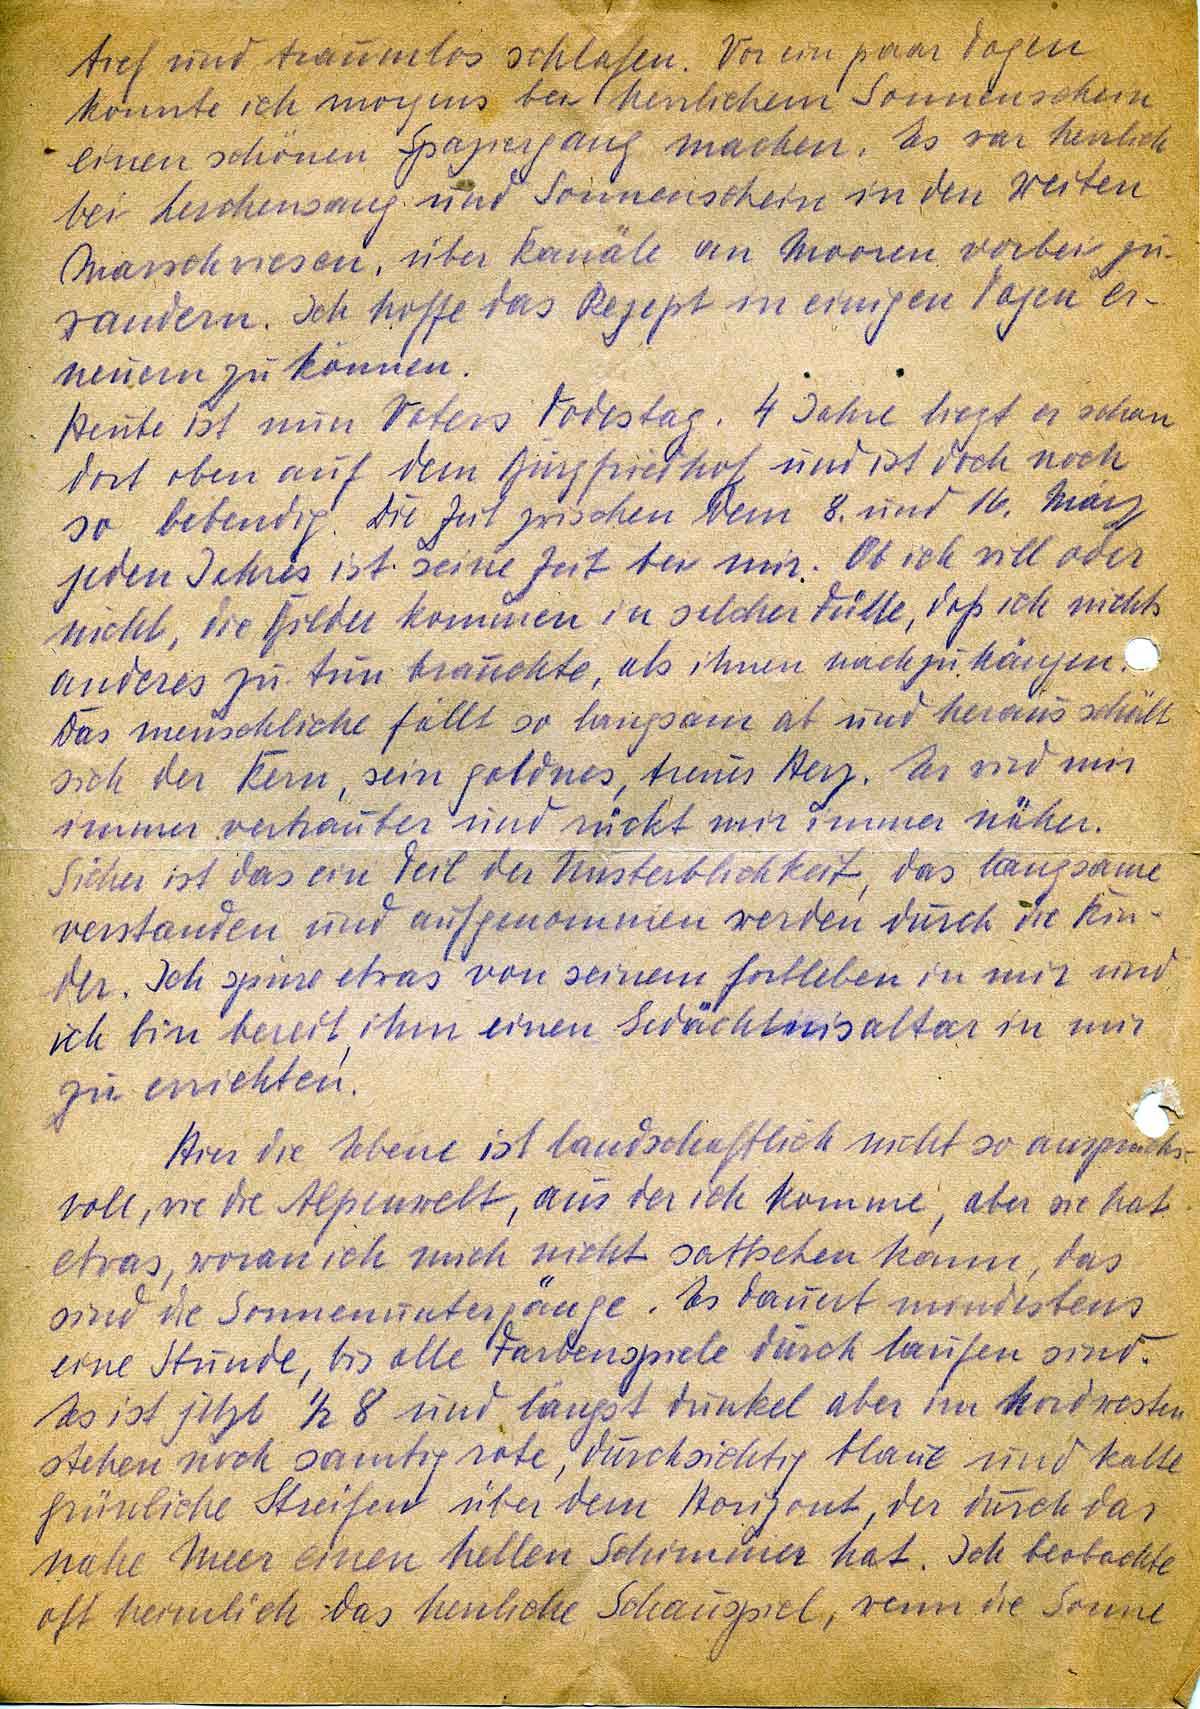 tief und traumlos schlafen. Vor ein paar Tagen
konnte ich morgens bei herrlichem Sonnenschein
einen schönen Spaziergang machen. Es war herrlich
bei Lerchensang und Sonnenschein in den weiten
Marschwiesen, über Kanäle an Mooren vorbei zu
wandern. Ich hoffe das Rezept in einigen Tagen er-
neuern zu können.
Heute ist nun Vaters Todestag. 4 Jahre liegt er schon
dort oben auf dem Burgfriedhof und ist doch noch
so lebendig. Die Zeit zwischen dem 8. und 16. März
jeden Jahres ist seine Zeit bei mir. Ob ich will oder
nicht, die Bilder kommen in solcher Fülle, daß ich nichts
anderes zu tun brauchte, als ihnen nachzuhängen.
Das menschliche fällt so langsam ab und heraus schält
sich der Kern, sein goldnes, treues Herz. Er wird mir
immer vertrauter und rückt mir immer näher.
Sicher ist das ein Teil der Unsterblichkeit, das langsame
verstanden und aufgenommen werden durch die Kin-
der. Ich spüre etwas von seinem Fortleben in mir und
ich bin bereit, ihm einen Gedächtnisaltar in mir
zu errichten.
Hier die Ebene ist landschaftlich nicht so anspruchs-
voll, wie die Alpenwelt, aus der ich komme, aber sie hat
etwas, woran ich mich nicht sattsehen kann, das
sind die Sonnenuntergänge. Es dauert mindestens
eine Stunde, bis alle Farbenspiele durch laufen sind.
Es ist jetzt 1/2 8 und längst dunkel aber im Nordwesten
stehen noch samtig rote, durchsichtig blaue und kalte
grünliche Streifen über dem Horizont, der durch das
nahe Meer einen hellen Schimmer hat. Ich beobachte
oft heimlich das herrliche Schauspiel, wenn die Sonne